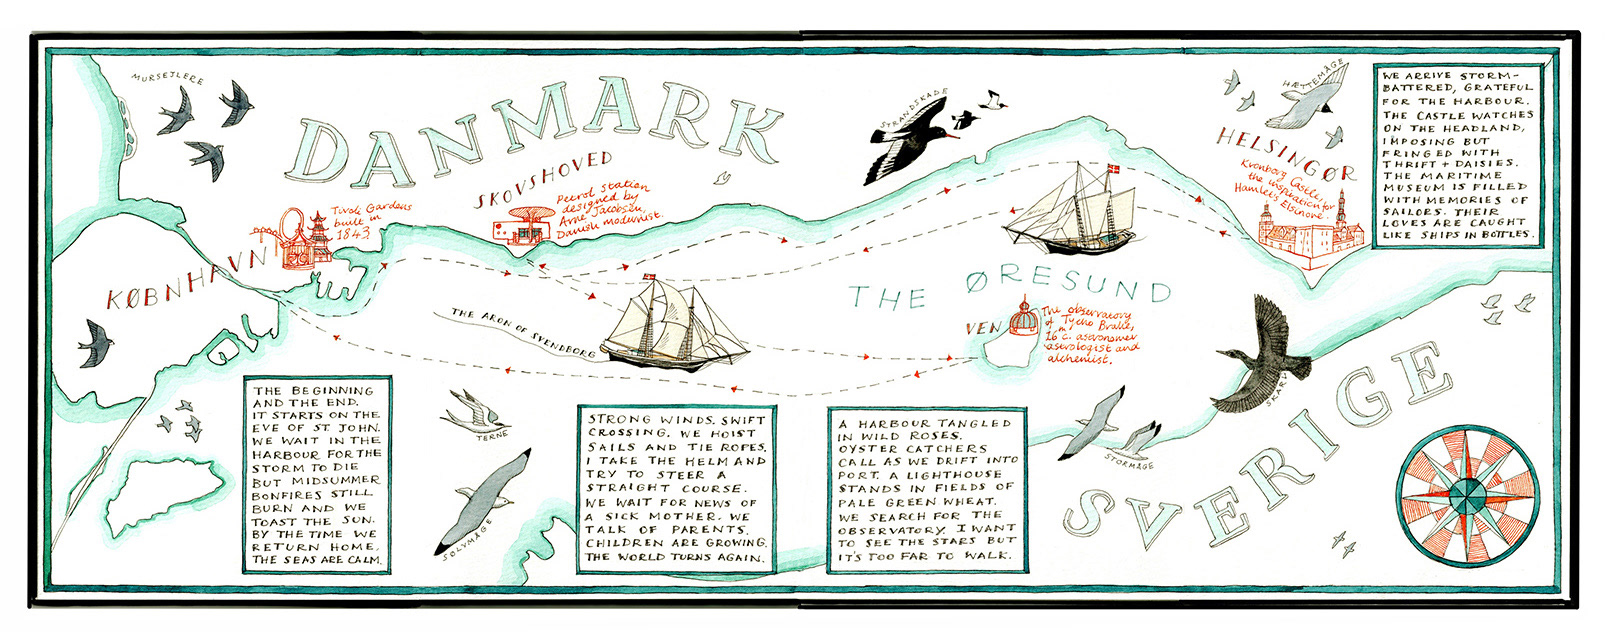 MURSEJLERE
DANMARK
STRANDSKADE
HÆTTEMÅGE
SKOVSHOVED
Petrol Station
designed by
Arne Jacobsen,
Danish modernist.
Tivoli Gardens
built in
1843
KØBNHAVN
HELSINGØR
Kronborg Castle,
the inspiration for
Hamlet's Elsinore.
WE ARRIVE STORM-
BATTERED, GRATEFUL
FOR THE HARBOUR.
THE CASTLE WATCHES
ON THE HEADLAND,
IMPOSING BUT
FRINGED WITH
THRIFT + DAISIES.
THE MARITIME
MUSEUM IS FILLED
WITH MEMORIES OF
SAILORS. THEIR
LOVES ARE CAUGHT
LIKE SHIPS IN BOTTLES.
THE ØRESUND
THE ARON OF SVENDBORG
VEN
The observatory
of Tycho Brahe,
16th c. astronomer
astrologist and
alchemist.
SKARV
SVERIGE
THE BEGINNING
AND THE END.
IT STARTS ON THE
EVE OF ST. JOHN.
WE WAIT IN THE
HARBOUR FOR THE
STORM TO DIE
BUT MIDSUMMER
BONFIRES STILL
BURN AND WE
TOAST THE SUN.
BY THE TIME WE
RETURN HOME,
THE SEAS ARE CALM.
TERNE
SØLVMÅGE
STRONG WINDS. SWIFT
CROSSING. WE HOIST
SAILS AND TIE ROPES.
I TAKE THE HELM AND
TRY TO STEER A
STRAIGHT COURSE.
WE WAIT FOR NEWS OF
A SICK MOTHER. WE
TALK OF PARENTS.
CHILDREN ARE GROWING.
THE WORLD TURNS AGAIN.
A HARBOUR TANGLED
IN WILD ROSES.
OYSTER CATCHERS
CALL AS WE DRIFT INTO
PORT. A LIGHTHOUSE
STANDS IN FIELDS OF
PALE GREEN WHEAT.
WE SEARCH FOR THE
OBSERVATORY. I WANT
TO SEE THE STARS BUT
IT'S TOO FAR TO WALK.
STORMÅGE